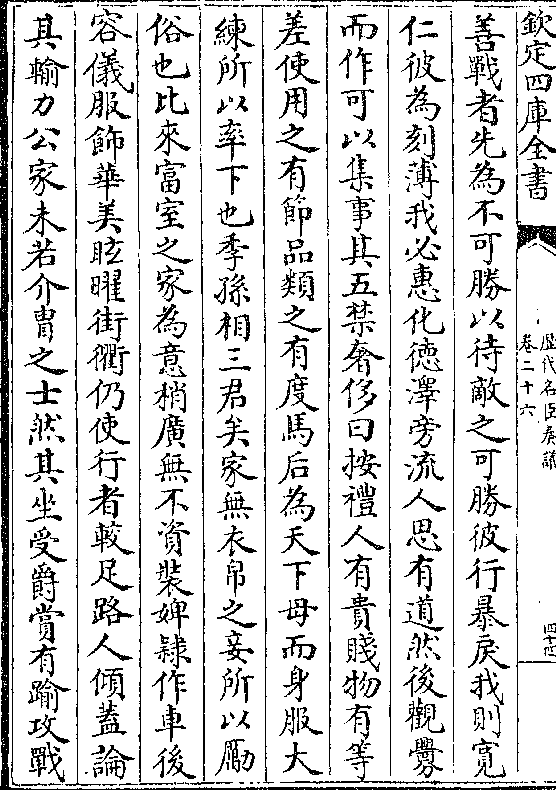 欽定四庫全書
歷代名臣奏議
卷二十六
四十四
善戰者先為不可勝以待敵之可勝彼行暴戾我則寛
仁彼為刻薄我必惠化徳澤旁流人思有道然後觀釁
而作可以集事其五禁奢侈曰按禮人有貴賤物有等
差使用之有節品類之有度馬后為天下母而身服大
練所以率下也季孫相三君矣家無衣帛之妾所以勵
俗也比來富室之家為意稍廣無不資裝婢隸作車後
容儀服飾華美眩曜街衢仍使行者輟足路人傾蓋論
其輸力公家未若介胄之士然其坐受爵賞有踰攻戰